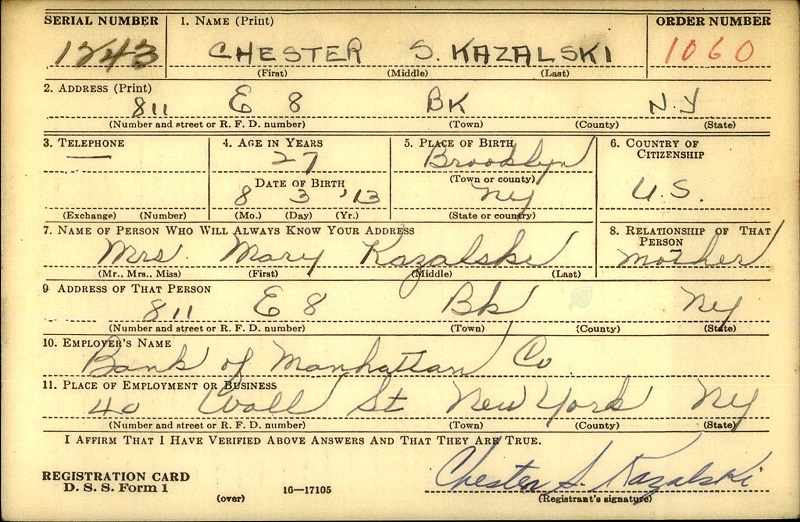 SERIAL NUMBER 1. NAME (Print) ORDER NUMBER
1243 CHESTER S. KAZALSKI 1060
(First) (Middle) (Last)
2. ADDRESS (Print)
811 E 8 BK N.Y
(Number and street or R. F. D. number) (Town) (County) (State)
3. TELEPHONE 4. AGE IN YEARS 5. PLACE OF BIRTH 6. COUNTRY OF CITIZENSHIP
— 27 Brooklyn
DATE OF BIRTH (Town or county)
8 3 '13 Ny U.S.
(Exchange) (Number) (Mo.) (Day) (Yr.) (State or country)
7. NAME OF PERSON WHO WILL ALWAYS KNOW YOUR ADDRESS 8. RELATIONSHIP OF THAT PERSON
Mrs. Mary Kazalski mother
(Mr., Mrs., Miss) (First) (Middle) (Last)
9. ADDRESS OF THAT PERSON
811 E 8 Bk Ny
(Number and street or R. F. D. number) (Town) (County) (State)
10. EMPLOYER'S NAME
Bank of Manhattan Co.
11. PLACE OF EMPLOYMENT OR BUSINESS
40 Wall St New York Ny
(Number and street or R. F. D. number) (Town) (County) (State)
I AFFIRM THAT I HAVE VERIFIED ABOVE ANSWERS AND THAT THEY ARE TRUE.
REGISTRATION CARD Chester S. Kazalski
D. S. S. Form 1 (over) 16—17105 (Registrant's signature)